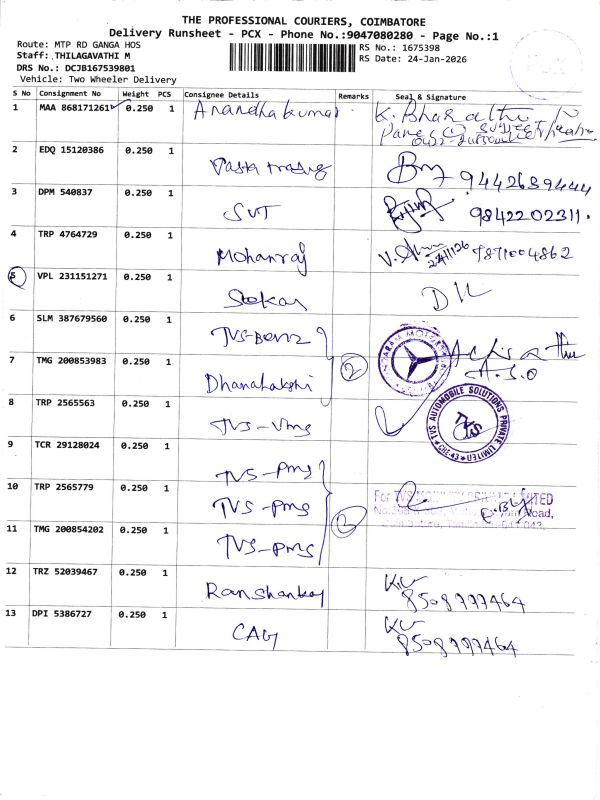 THE PROFESSIONAL COURIERS, COIMBATORE
Delivery Runsheet - PCX - Phone No.:9047080280 - Page No.:1
Route: MTP RD GANGA HOS
Staff: THILAGAVATHI M
DRS No.: DCJB167539801
Vehicle: Two Wheeler Delivery
RS No.: 1675398
RS Date: 24-Jan-2026
S No Consignment No Weight PCS Consignee Details Remarks Seal & Signature
1 MAA 868171261 0.250 1 Anandhakumar K. Bharathi
2 EDQ 15120386 0.250 1 9442639444
3 DPM 540837 0.250 1 SVT 9842202311.
4 TRP 4764729 0.250 1 Mohanraj 24/1/26 9871004862
5 VPL 231151271 0.250 1 Sekar
6 SLM 387679560 0.250 1 TVS-Benz
7 TMG 200853983 0.250 1 2 A.S.O
8 TRP 2565563 0.250 1 TVS-Vms TVS AUTOMOBILE SOLUTIONS PRIVATE LIMITED TVS
9 TCR 29128024 0.250 1 TVS-pms
10 TRP 2565779 0.250 1 TVS-pms
11 TMG 200854202 0.250 1 TVS-pms
12 TRZ 52039467 0.250 1 8508777464
13 DPI 5386727 0.250 1 CAG